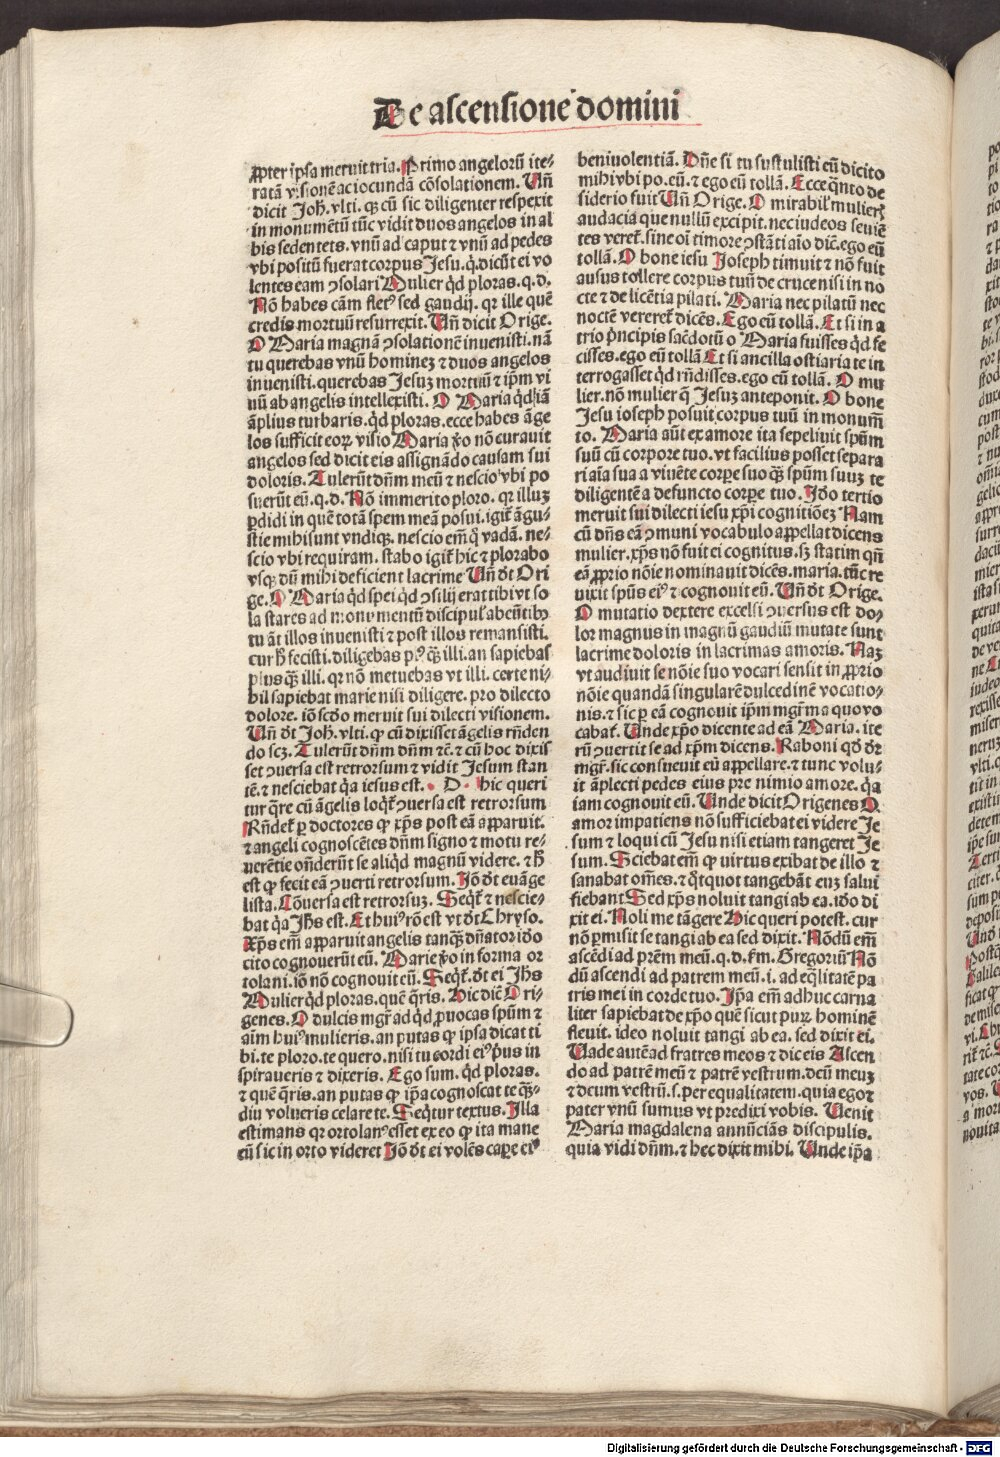 De ascensione domini
ꝓpter ip̄a meruit tria. Primo angelorū ite-
ratā visionē ac iocundā cōsolationem. Vn̄
dicit Joh̄. vlti. qꝫ cū sic diligenter respexit
in monumētū tūc vidit duos angelos in al
bis sedentets. vnū ad caput ⁊ vnū ad pedes
vbi positū fuerat corpus Jesu. q̄ dicūt ei vo
lentes eam ꝯsolari Mulier qd̄ ploras. q. d.
Nō habes cām fletꝰ sed gaudij. qr ille quē
credis mortuū resurrexit. Vn̄ dicit Orige.
O Maria magnā ꝯsolationē inuenisti. nā
tu querebas vnū hominez ⁊ duos angelos
inuenisti. querebas Jesuz mortuū ⁊ ip̄m vi
uū ab angelis intellexisti. O Maria qd̄ iā
āplius turbaris. qd̄ ploras. ecce habes āge
los sufficit eoꝝ visio Maria ꝟo nō curauit
angelos sed dicit eis assignādo causam sui
doloris. Tulerūt dn̄m meū ⁊ nescio vbi po
suerūt eū. q. d. Nō immerito ploro. qr illuz
ꝑdidi in quē totā spem meā posui. igit̄ āgu-
stie mihi sunt vndiqꝫ. nescio em̄ q̄ vadā. ne-
scio vbi requiram. stabo igit̄ hic ⁊ plorabo
vsqꝫ dū mihi deficient lacrime Vn̄ dt̄ Ori
ge. O Maria qd̄ spei qd̄ ꝯsilij erat tibi vt so
la stares ad monumentū discipul' abeūtibꝫ
tu āt illos inuenisti ⁊ post illos remansisti.
cur h̄ fecisti. diligebas plꝰ qꝫ illi. an sapiebas
plus qꝫ illi. qr nō metuebas vt illi. certe ni-
hil sapiebat marie nisi diligere. pro dilecto
dolore. iō scd̄o meruit sui dilecti visionem.
Vn̄ dt̄ Joh̄. vlti. ꝙ cū dixisset āgelis rn̄den
do scꝫ. Tulerūt dn̄m dn̄m ⁊c̄. ⁊ cū hoc dixis
set ꝯuersa est retrorsum ⁊ vidit Jesum stan
tē. ⁊ nesciebat qa iesus est. D. hic queri
tur qre cū āgelis loqr̄t ꝯuersa est retrorsum
Rn̄det̄ ꝑ doctores ꝙ xp̄s post eā apparuit.
⁊ angeli cognoscētes dn̄m signo ⁊ motu re-
uerētie on̄derūt se aliqd̄ magnū videre. ⁊ h̄
est ꝙ fecit eā ꝯuerti retrorsum. Jō dt̄ euāge
lista. Cōuersa est retrorsuz. Seqr̄ ⁊ nescie-
bat qa Jh̄s est. Et huiꝰ rō est vt dt̄ Chryso.
Xp̄s em̄ apparuit angelis tanqꝫ dn̄ator iō
cito cognouerūt eū. Marie ꝟo in forma or
tolani. iō nō cognouit eū. Seqr̄. dt̄ ei Jh̄s
Mulier qd̄ ploras. quē q̄ris. Hic dic̄ Ori-
genes. O dulcis mgr̄ ad qd̄ ꝓuocas spūm ⁊
aīm huiꝰ mulieris. an putas ꝙ ipsa dicat ti
bi. te ploro. te quero. nisi tu cordi eiꝰ pꝰus in
spiraueris ⁊ dixeris. Ego sum. qd̄ ploras.
⁊ quē q̄ris. an putas ꝙ ip̄a cognoscat te qꝫ-
diu volueris celare te. Seqt̄ur textus. Illa
estimans qr ortolanꝰ esset ex eo ꝙ ita mane
eū sic in orto videret Jō dt̄ ei volēs caꝑe eiꝰ
beniuolentiā. Dn̄e si tu sustulisti eū dicito
mihi vbi po. eū. ⁊ ego eū tollā. Ecce qn̄to de
siderio fuit Vn̄ Orige. O mirabil' mulierꝫ
audacia que nullū excipit. nec iudeos seuiē
tes veret̄. sine oī timore ꝯstāti aīo dic̄. ego eū
tollā. O bone iesu Joseph timuit ⁊ nō fuit
ausus tollere corpus tuū de cruce nisi in no
cte ⁊ de licētia pilati. Maria nec pilatū nec
noctē vereret̄ dicēs. Ego eū tollā. Et si in a
trio pn̄cipis sac̄dotū o Maria fuisses qd̄ fe
cisses. ego eū tollā Et si ancilla ostiaria te in
terrogasset qd̄ rn̄disses. ego eū tollā. O mu
lier. nō mulier q̄ Jesuz anteponit. O bone
Jesu ioseph posuit corpus tuū in monum̄
to. Maria aūt ex amore ita sepeliuit spūm
suū cū corpore tuo. vt facilius posset separa
ri aīa sua a viuēte corꝑe suo qꝫ spūm suuz te
diligentē a defuncto corꝑe tuo. Jdo tertio
meruit sui dilecti iesu xp̄i cognitiōez Nam
cū dn̄s eā ꝯmuni vocabulo appellat dicens
mulier. xp̄s nō fuit ei cognitus. sꝫ statim qn̄
eā ꝓprio nōie nominauit dicēs. maria. tūc re
uixit spūs eiꝰ ⁊ cognouit eū. Vn̄ dt̄ Orige.
O mutatio dextere excelsi ꝯuersus est do-
lor magnus in magnū gaudiū mutate sunt
lacrime doloris in lacrimas amoris. Naꝫ
vt audiuit se nōie suo vocari sensit in ꝓprio
nōie quandā singularē dulcedinē vocatio-
nis. ⁊ sic ꝑ eā cognouit ip̄m mgr̄m a quo vo
cabat̄. Unde xp̄o dicente ad eā Maria. ite
rū ꝯuertit se ad xp̄m dicens. Raboni qd̄ dr̄
mgr̄. sic consueuit eū appellare. ⁊ tunc volu-
it āplecti pedes eius pre nimio amore. qa
iam cognouit eū. Unde dicit Origenes O.
amor impatiens nō sufficiebat ei videre Je
sum ⁊ loqui cū Jesu nisi etiam tangeret Je
sum. Sciebat em̄ ꝙ virtus exibat de illo ⁊
sanabat om̄es. ⁊ qt̄quot tangebāt euz salui
fiebant Sed xp̄s noluit tangi ab ea. ido di
xit ei. Noli me tāgere Hic queri potest. cur
nō ꝑmisit se tangi ab ea sed dixit. Nōdū em̄
ascēdi ad prēm meū. q. d. fm. Gregoriū Nō
dū ascendi ad patrem meū. i. ad eqlitatē pa
tris mei in corde tuo. Jp̄a em̄ adhuc carna
liter sapiebat de xp̄o quē sicut puꝝ hominē
fleuit. ideo noluit tangi ab ea. sed dixit ei.
Vade autē ad fratres meos ⁊ dic eis Ascen
do ad patrē meū ⁊ patrē vestrum. deū meuz
⁊ deum vestrū. s. per equalitatem. quia ego ⁊
pater vnū sumus vt predixi vobis. Venit
Maria magdalena annūciās discipulis.
quia vidi dn̄m. ⁊ hec dixit mihi. Unde ip̄a
Digitalisierung gefördert durch die Deutsche Forschungsgemeinschaft - DFG